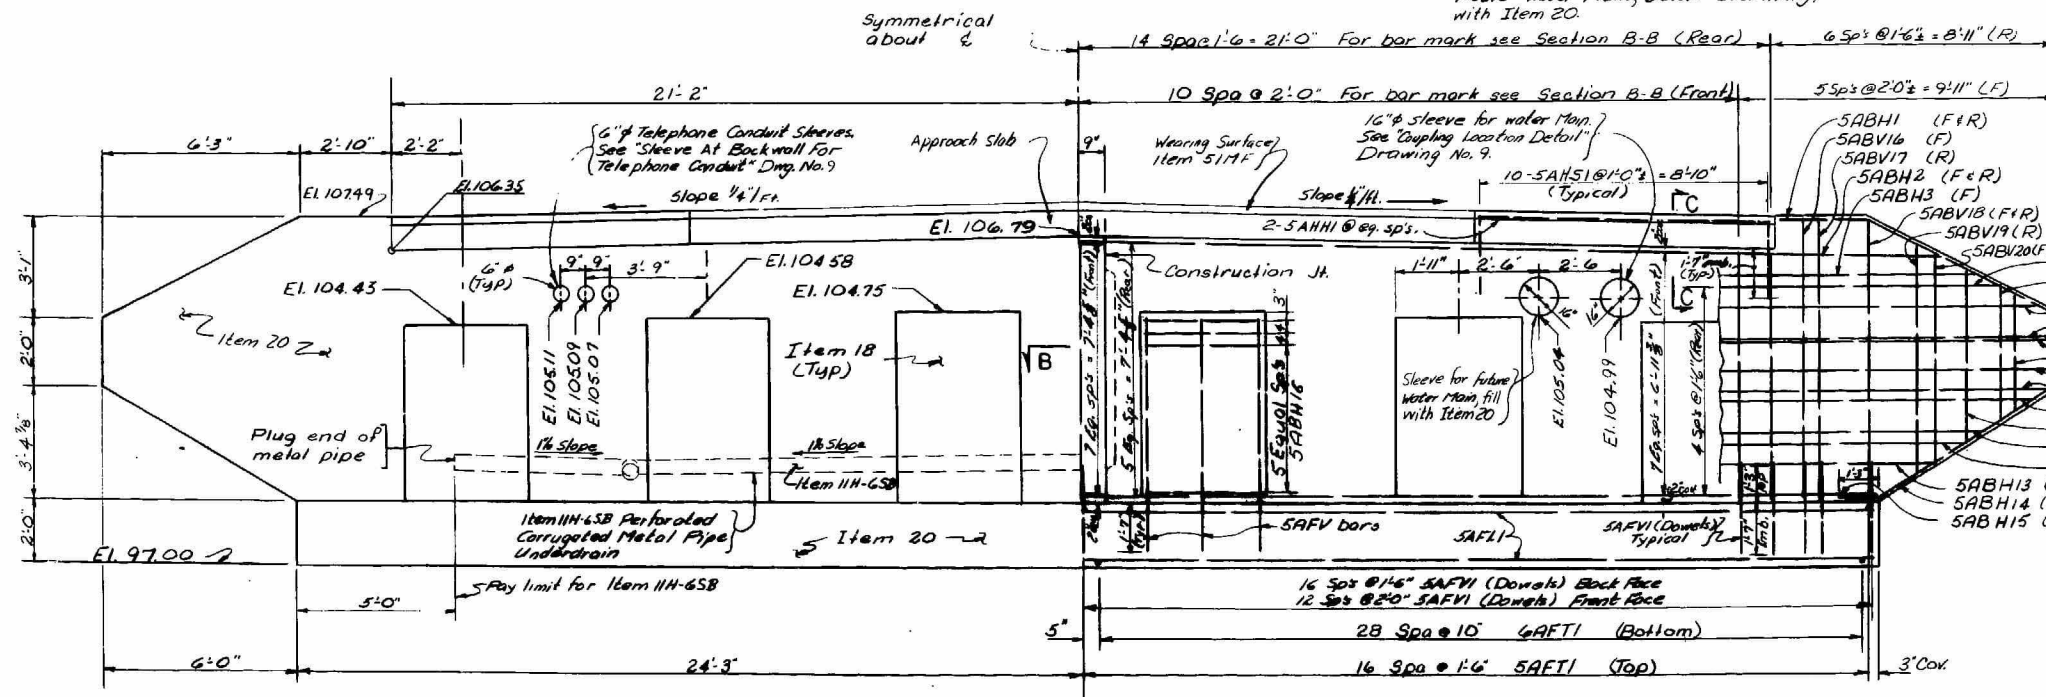 with Item 20.
Symmetrical
about ℄
14 Spa@1'-6 = 21'-0" For bar mark see Section B-B (Rear)
6 Sp's @1'-6"± = 8'-11" (R)
21'-2"
10 Spa @ 2'-0" For bar mark see Section B-B (Front)
5 Sp's @ 2'-0"± = 9'-11" (F)
6'-3"
2'-10"
2'-2"
6"φ Telephone Conduit Sleeves.
See "Sleeve At Backwall For
Telephone Conduit" Dwg. No. 9
Approach Slab
9"
Wearing Surface
Item 51MF
16"φ sleeve for water Main.
See "Coupling Location Detail"
Drawing No. 9.
5ABH1 (F&R)
5ABV16 (F)
5ABV17 (R)
5ABH2 (F&R)
5ABH3 (F)
5ABV18 (F&R)
5ABV19 (R)
5ABV20 (F
10-5AHS1@1'-0"± = 8'-10"
(Typical)
C
El. 107.49
El. 106.35
Slope 1/4"/Ft.
Slope 1/4"/ft.
El. 106.79
2-5AHH1 @ eq. sp's.
3'-1"
6"φ
(Typ)
9" 9"
3'-9"
El. 104.58
Construction Jt.
1'-11"
2'-6"
2'-6
1'-7" emb.
(Typ)
El. 104.43
El. 104.75
C
16"
16"
Item 20
2'-0"
Item 18
(Typ)
B
El. 105.11
El. 105.09
El. 105.07
7 Eq. Sp's = 7'-4 5/8" (Front)
5 Eq. Sp's = 7'-4 5/8" (Rear)
3"
5 Equal Sp's
5ABH16
Sleeve for future
Water Main, fill
with Item 20
El. 105.04
El. 104.99
7 Eq. Sp's = 6'-11 3/8" (Front)
4 Sp's @ 1'-6" (Rear)
3'-4 7/8"
Plug end of
metal pipe
1% Slope
1% Slope
Item 11H-6SB
1'-3"
5ABH13
5ABH14
5ABH15
2'-0"
Item 11H-6SB Perforated
Corrugated Metal Pipe
Underdrain
Item 20
1'-7"
(Typ)
5AFV bars
5AFL1
5AFV1 (Dowels)
Typical
1'-7"
Emb.
El. 97.00
Pay limit for Item 11H-6SB
5'-0"
16 Sp's @ 1'-6" 5AFV1 (Dowels) Back Face
12 Sp's @ 2'-0" 5AFV1 (Dowels) Front Face
5"
28 Spa @ 10" 6AFT1 (Bottom)
6'-0"
24'-3"
16 Spa @ 1'-6" 5AFT1 (Top)
3" Cov.